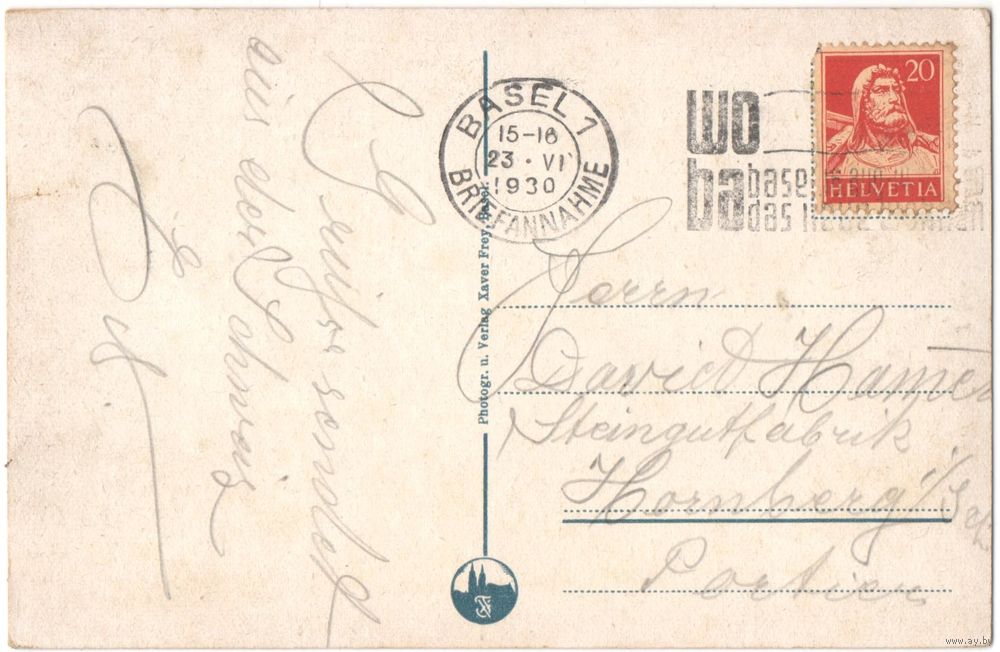 Grüße sendet
aus der Schweiz
BASEL 1
15-16
23 · VI
1930
BRIEFANNAHME
wo
ba basel
das neue
20
HELVETIA
Photogr. u. Verlag Xaver Frey, Basel.
Herrn
David
Steingutfabrik
Hornberg
Portier
www.ay.by